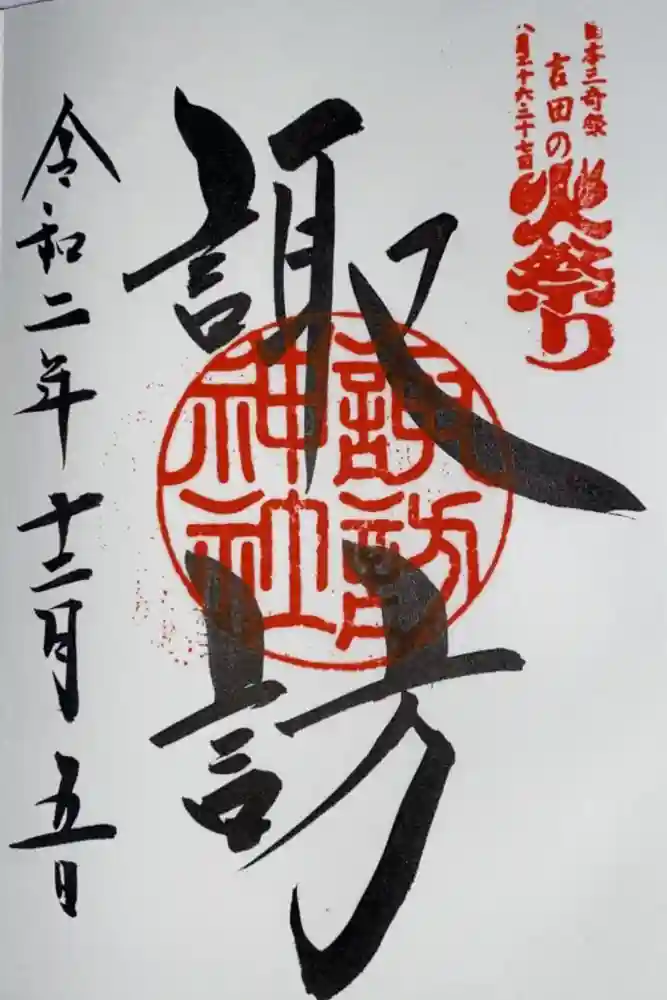 日本三奇祭
吉田の火祭り
八月二十六二十七日
諏訪
諏訪
神社
令和二年十二月五日